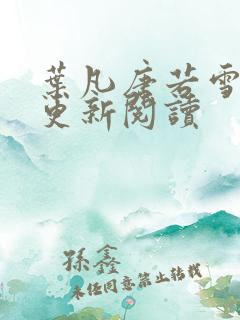 葉凡唐若雪
更新閱讀
孫鑫
未经同意禁止转载